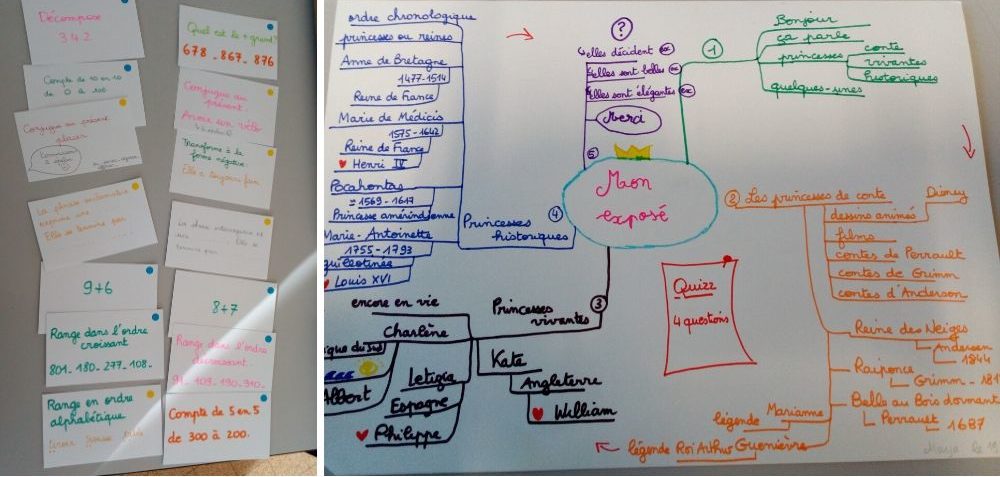 Décompose
342
Quel est le + grand?
678 - 867 - 876
Compte de 10 en 10
de 0 à 100
Conjugue au
présent
Avoir son vélo
Conjugue au présent
placer
Transforme à la
forme négative
Elle a toujours faim
La phrase
exprime une
Elle se termine par
La phrase interrogative est
Elle se
termine par
9+6
8+7
Range dans l'ordre
croissant
801 - 180 - 277 - 108 -
Range dans l'ordre
décroissant
91 - 109 - 190 - 910 -
Range en ordre
alphabétique
Compte de 5 en 5
de 300 à 200.
Mon
exposé
1
Bonjour
ça parle
princesses
conte
vivantes
historiques
quelques-unes
2 Les princesses de conte
Disney
dessins animés
films
contes de Perrault
contes de Grimm
contes d'Anderson
Reine des Neiges
Andersen
1844
Raiponce
Grimm - 181
Belle au Bois dormant
Perrault 1687
Marianne
légende
légende Roi Arthur Guenièvre
3
Princesses
vivantes
encore en vie
Charlène
ique du Sud
Albert
Letizia
Espagne
Philippe
Kate
Angleterre
William
4
Princesses
historiques
ordre chronologique
princesses ou reines
Anne de Bretagne
1477-1514
Reine de France
Marie de Médicis
1575-1642
Reine de France
Henri IV
Pocahontas
= 1569 - 1617
Princesse amérindienne
Marie-Antoinette
1755-1793
guillotinée
Louis XVI
5
?
elles décident ex
elles sont belles ex
elles sont élégantes ex
Merci
Quizz
4 questions